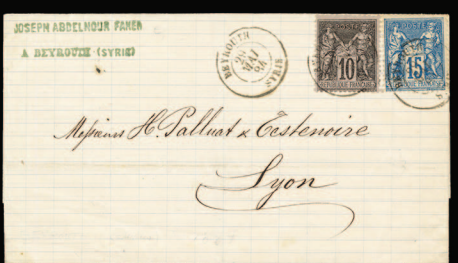 JOSEPH ABDELNOUR FAKER
A BEYROUTH (SYRIE)
BEYROUTH
MAI
SYRIE
POSTE
10
REPUBLIQUE FRANCAISE
POSTE
15
REPUBLIQUE FRANCAISE
Messieurs H. Palluat & Testenoire
Lyon